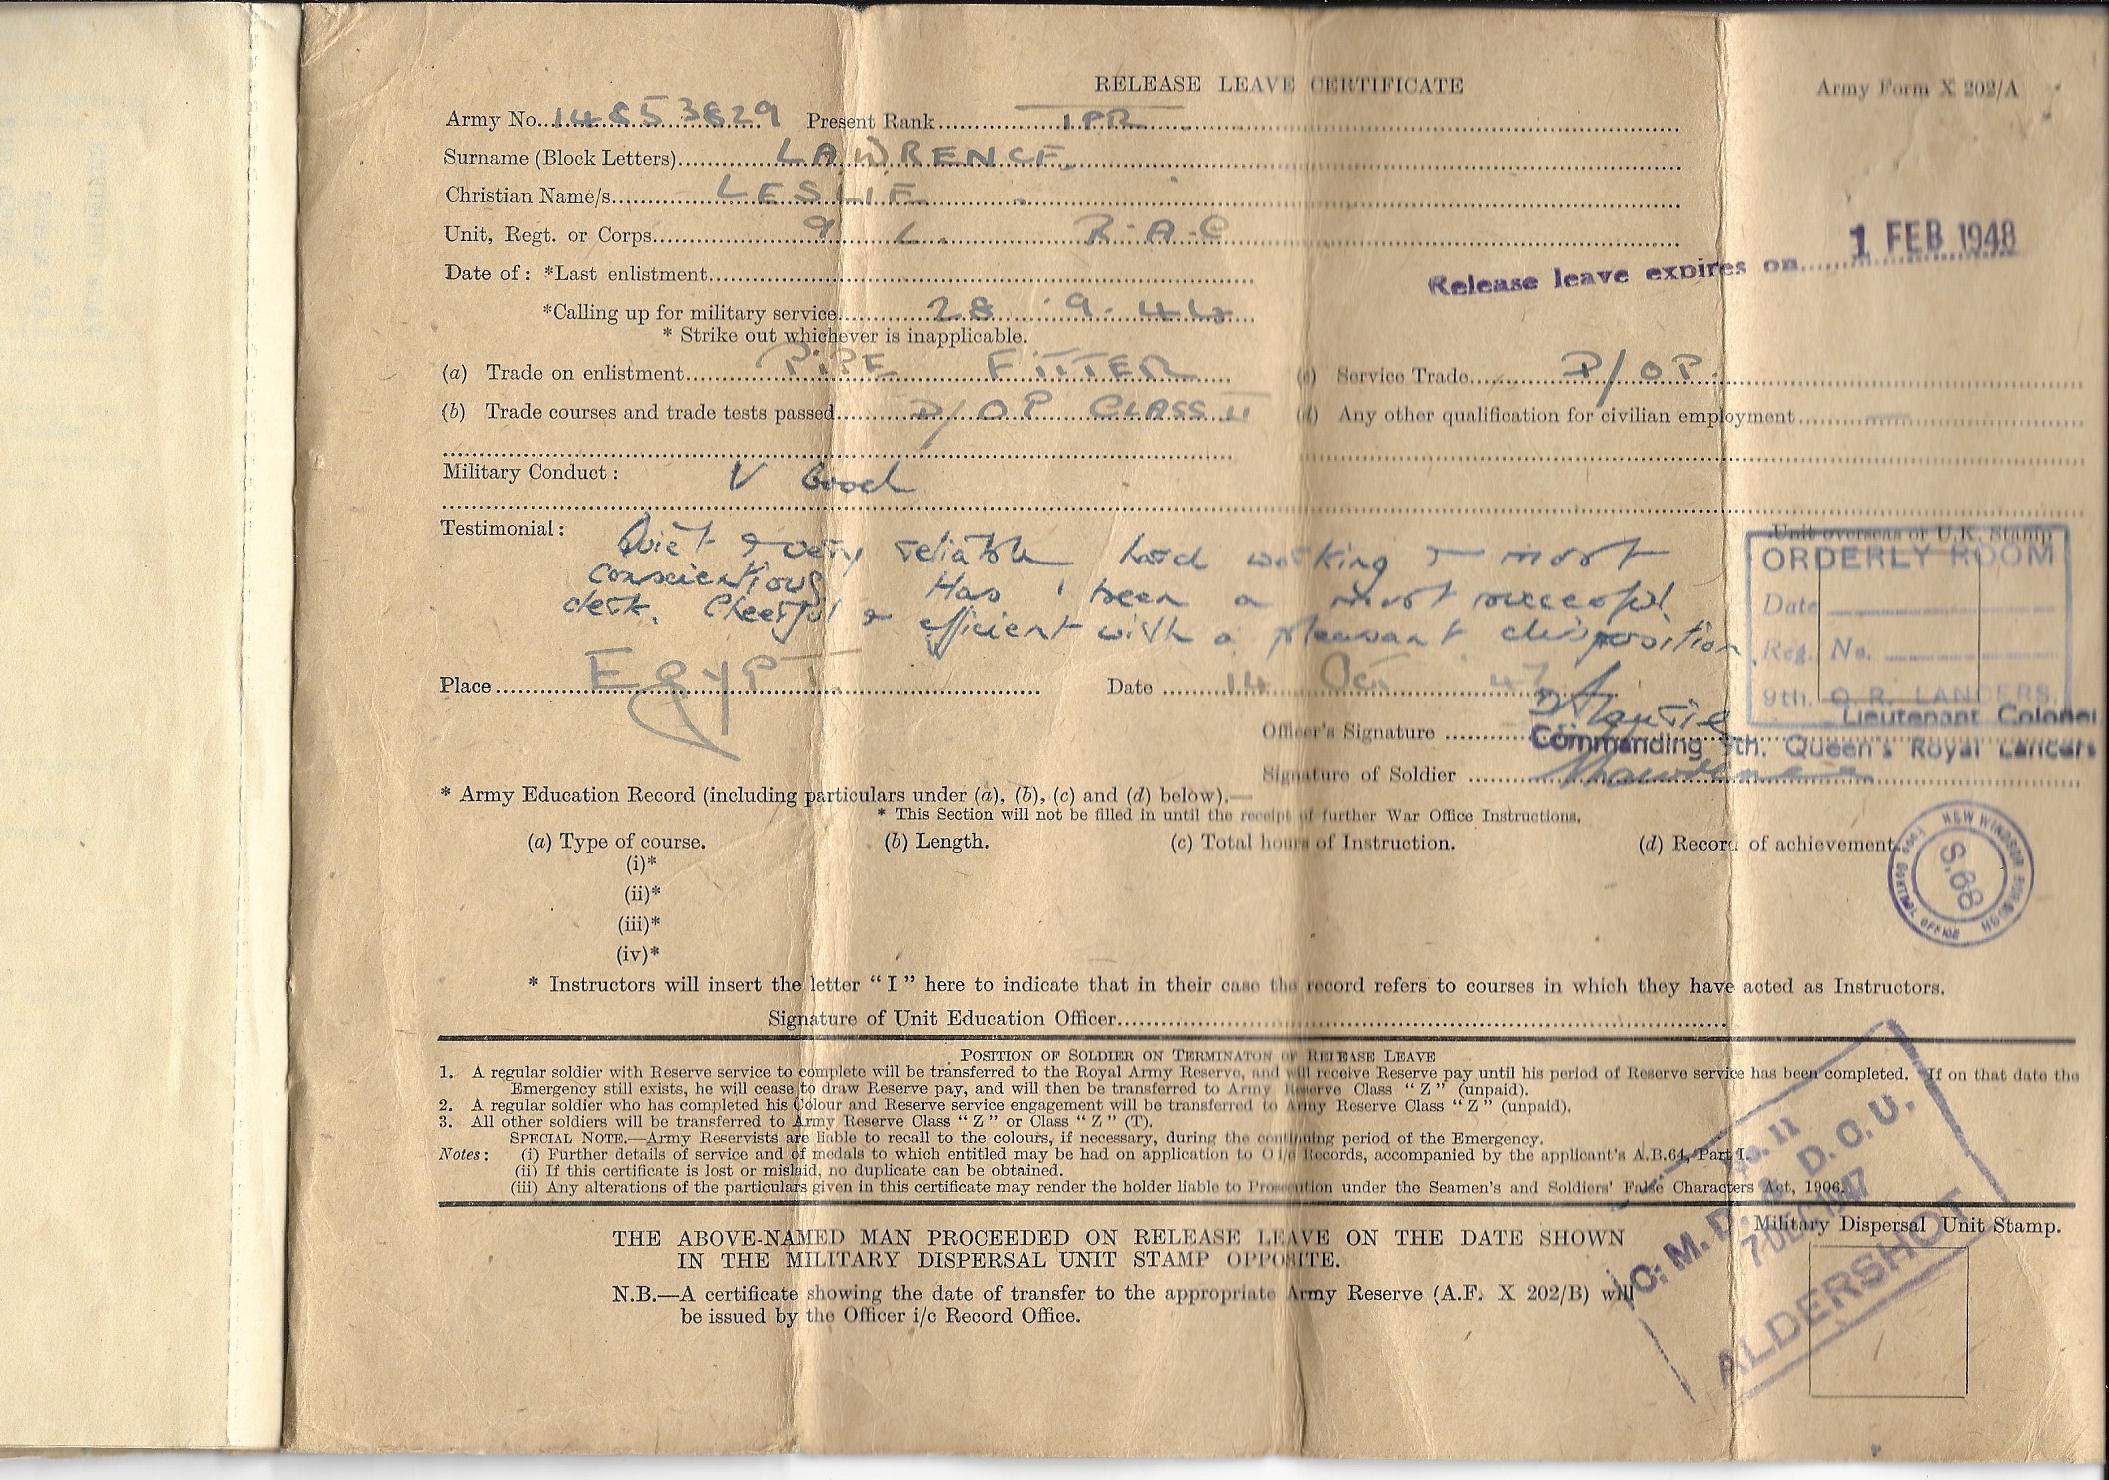 RELEASE LEAVE CERTIFICATE
Army Form X 202/A
Army No. 14853829 Present Rank TPR
Surname (Block Letters) LAWRENCE.
Christian Name/s LESLIE
Unit, Regt. or Corps 9 L. R.A.C
1 FEB 1948
Release leave expires on
Date of: *Last enlistment
*Calling up for military service 28 . 9. 44
* Strike out whichever is inapplicable.
(a) Trade on enlistment PIPE FITTER
(c) Service Trade D/OP.
(b) Trade courses and trade tests passed D/OP CLASS II
(d) Any other qualification for civilian employment
Military Conduct: V Good
Testimonial: Quiet & very reliable hard working & most
conscientious Has been a most successful
clerk. Cheerful & efficient with a pleasant disposition
Unit overseas or U.K. Stamp
ORDERLY ROOM
Date
Reg. No.
9th. Q.R. LANCERS.
Place EGYPT Date 14 Oct 47
Lieutenant Colonel
Officer's Signature
Commanding 9th. Queen's Royal Lancers
Signature of Soldier
* Army Education Record (including particulars under (a), (b), (c) and (d) below).—
* This Section will not be filled in until the receipt of further War Office Instructions.
(a) Type of course. (b) Length. (c) Total hours of Instruction. (d) Record of achievement.
(i)*
(ii)*
(iii)*
(iv)*
NEW WINDSOR BOROUGH
FOOD CONTROL OFFICE
S.68
* Instructors will insert the letter “I” here to indicate that in their case the record refers to courses in which they have acted as Instructors.
Signature of Unit Education Officer
POSITION OF SOLDIER ON TERMINATON OF RELEASE LEAVE
1. A regular soldier with Reserve service to complete will be transferred to the Royal Army Reserve, and will receive Reserve pay until his period of Reserve service has been completed. If on that date the
Emergency still exists, he will cease to draw Reserve pay, and will then be transferred to Army Reserve Class “Z” (unpaid).
2. A regular soldier who has completed his Colour and Reserve service engagement will be transferred to Army Reserve Class “Z” (unpaid).
3. All other soldiers will be transferred to Army Reserve Class “Z” or Class “Z” (T).
SPECIAL NOTE.—Army Reservists are liable to recall to the colours, if necessary, during the continuing period of the Emergency.
Notes: (i) Further details of service and of medals to which entitled may be had on application to O i/c Records, accompanied by the applicant's A.B.64, Part I.
(ii) If this certificate is lost or mislaid, no duplicate can be obtained.
(iii) Any alterations of the particulars given in this certificate may render the holder liable to Prosecution under the Seamen's and Soldiers' False Characters Act, 1906.
No. 11
D.O.U.
7 DEC 1947
ALDERSHOT
Military Dispersal Unit Stamp.
THE ABOVE-NAMED MAN PROCEEDED ON RELEASE LEAVE ON THE DATE SHOWN
IN THE MILITARY DISPERSAL UNIT STAMP OPPOSITE.
N.B.—A certificate showing the date of transfer to the appropriate Army Reserve (A.F. X 202/B) will
be issued by the Officer i/c Record Office.